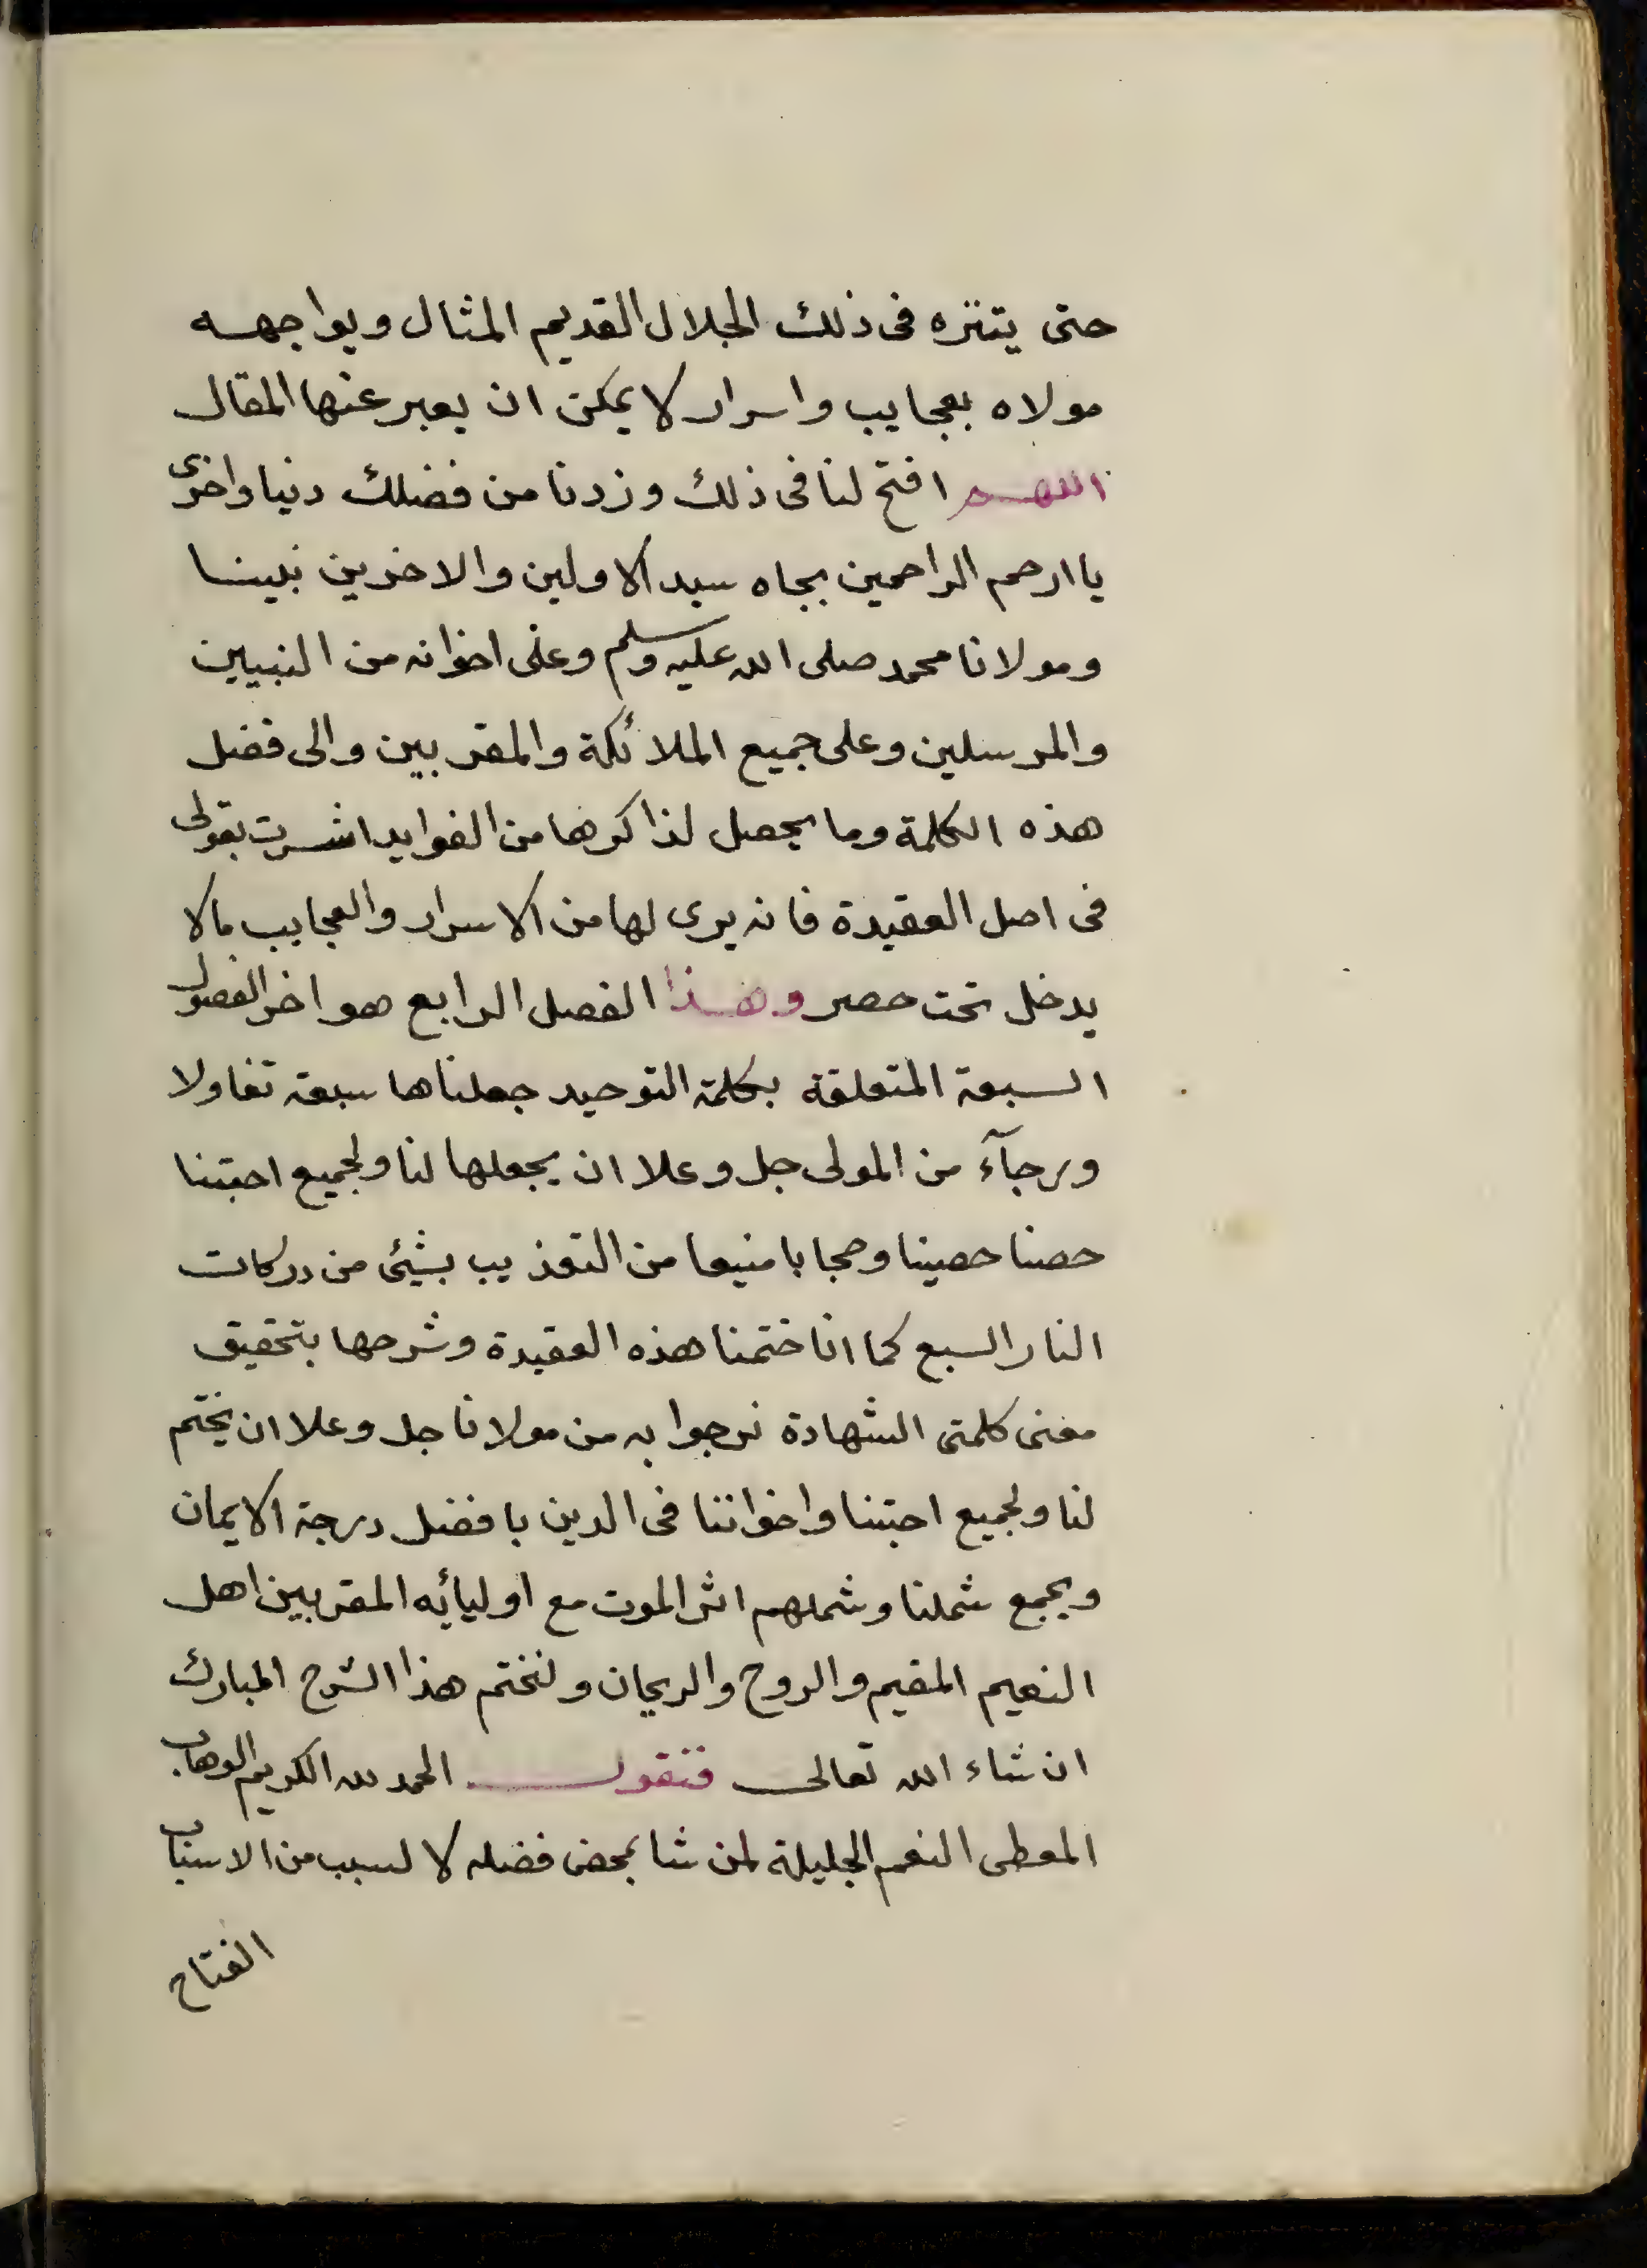 حتى يتنزه فى ذلك الجلال القديم المثال ويواجهه
مولاه بعجايب واسرار لا يمكن ان يعبر عنها المقال
اللهم افتح لنا فى ذلك وزدنا من فضلك دنيا واخرى
يا ارحم الراحمين بجاه سيد الاولين والاخرين نبينا
ومولانا محمد صلى الله عليه وسلم وعلى اخوانه من النبيين
والمرسلين وعلى جميع الملائكة والمقربين والى فضل
هذه الكلمة وما يحصل لذاكرها من الفوايد اشرت بقولى
فى اصل العقيدة فانه يرى لها من الاسرار والعجايب مالا
يدخل تحت حصر وهذا الفصل الرابع هو اخر الفصول
السبعة المتعلقة بكلمة التوحيد جعلناها سبعة تفاولا
ورجآء من المولى جل وعلا ان يجعلها لنا ولجميع احبتنا
حصنا حصينا وحجابا منيعا من التعذيب بشيئ من دركات
النار السبع كما انا ختمنا هذه العقيدة وشرحها بتحقيق
معنى كلمتى الشهادة نرجوا به من مولانا جل وعلا ان يختم
لنا ولجميع احبتنا واخواننا فى الدين بافضل درجة الايمان
ويجمع شملنا وشملهم اثر الموت مع اوليائه المقربين اهل
النعيم المقيم والروح والريحان ولنختم هذا الشرح المبارك
ان شاء الله تعالى فنقول الحمد لله الكريم الوهاب
المعطى النعم الجليلة لمن شا بمحض فضله لا لسبب من الاسباب
الفتاح